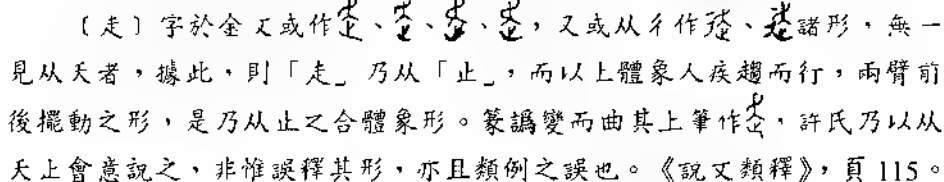 〔走〕字於金文或作、、、，又或从彳作、諸形，無一
見从夭者，據此，則「走」乃从「止」，而以上體象人疾趨而行，兩臂前
後擺動之形，是乃从止之合體象形。篆譌變而曲其上筆作，許氏乃以从
夭止會意說之，非惟誤釋其形，亦且類例之誤也。《說文類釋》，頁 115。